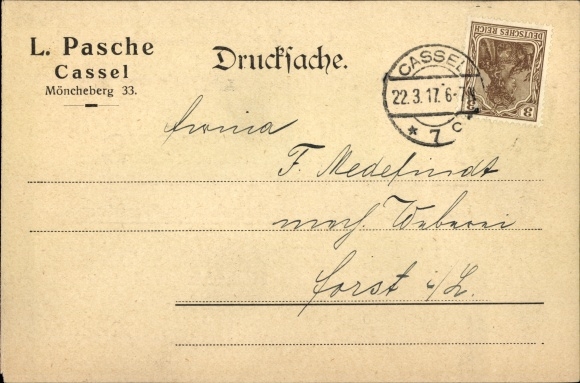 L. Pasche
Cassel
Möncheberg 33.
Drucksache.
CASSEL
22.3.17. 6-7
* 7 c
DEUTSCHES REICH
3
Firma
F. Medefindt
mech. Weberei
Forst i/L.